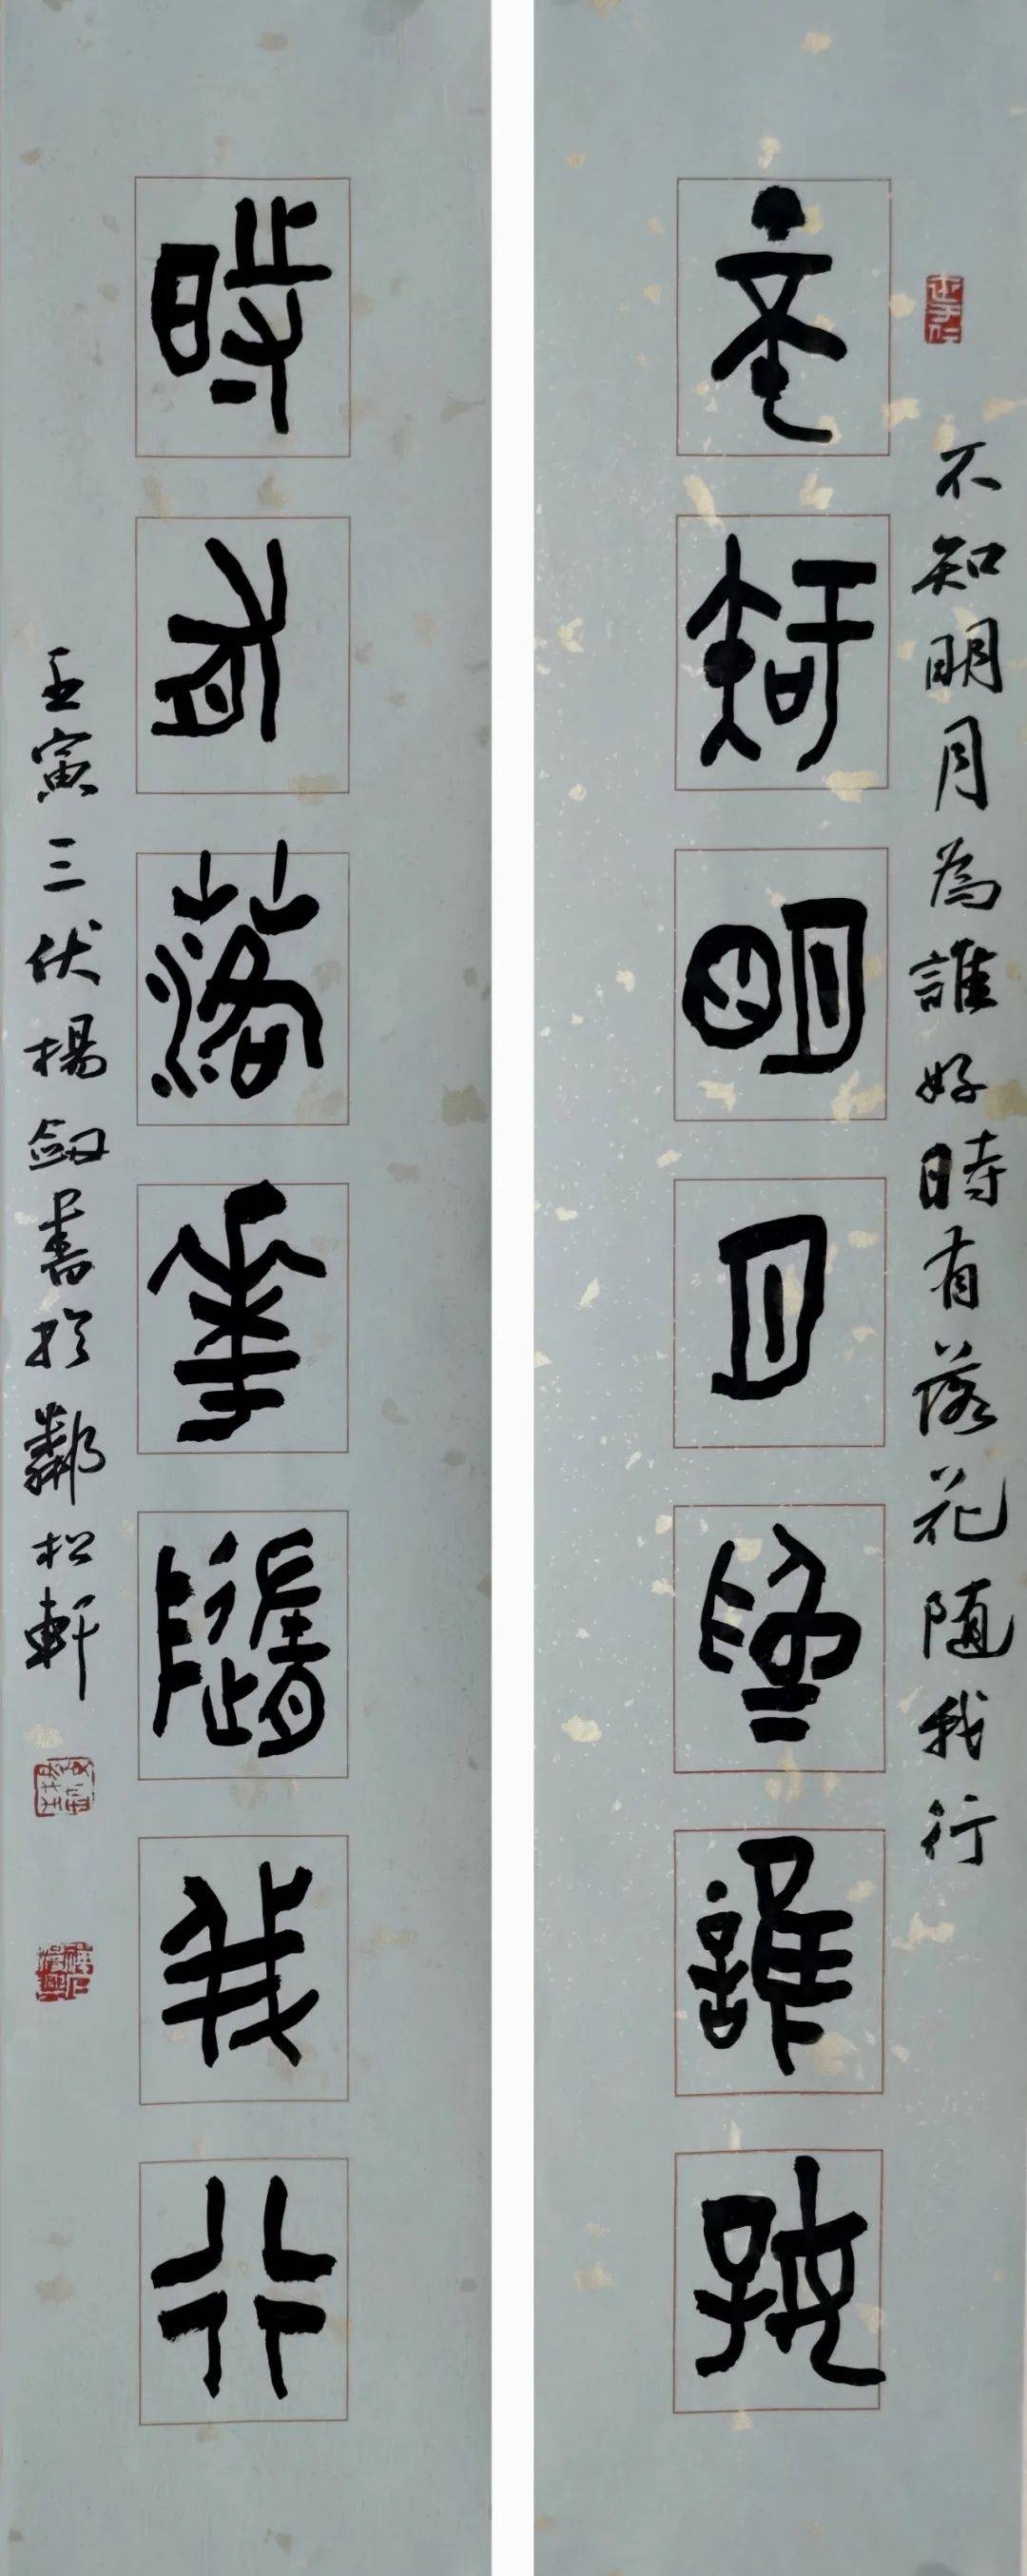 不知明月為誰好時有落花随我行
不知明月為誰好
時有落華隨我行
壬寅三伏楊劔書於鄰松軒